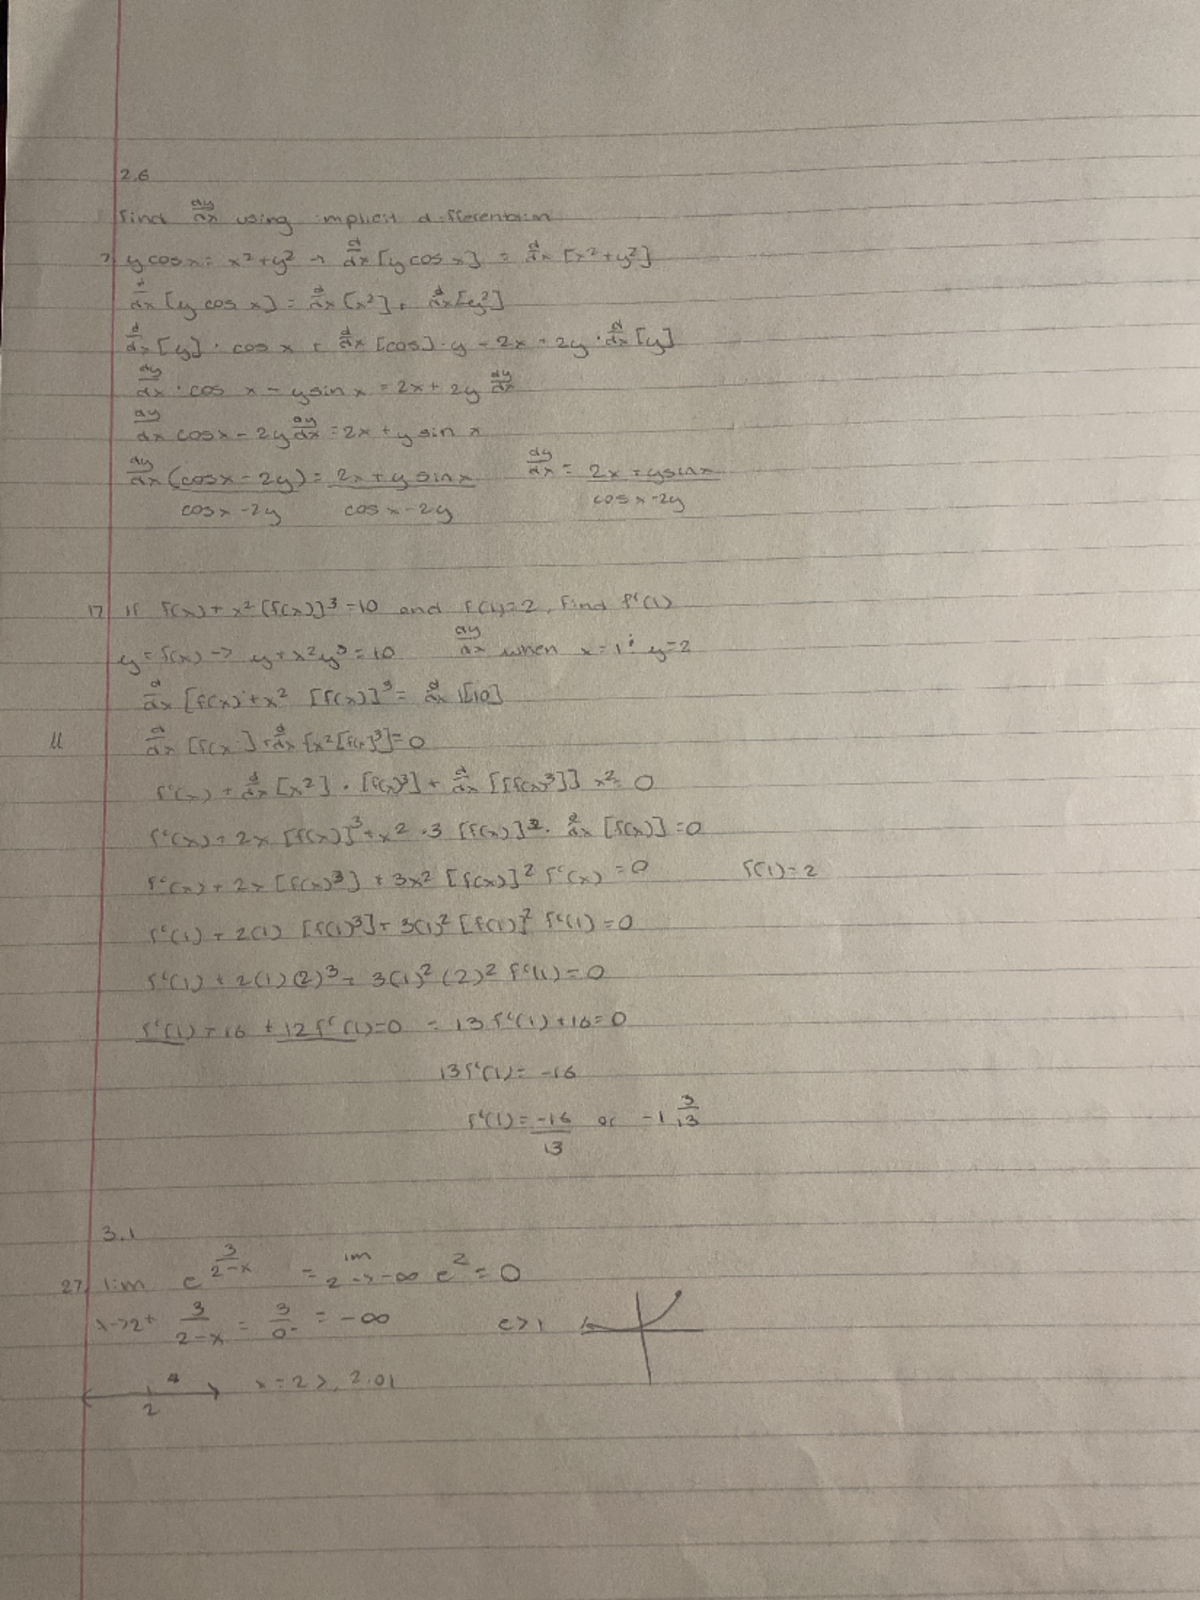 2.6
Find dy/dx using implicit differentation
7) y cos x = x² + y² → d/dx [y cos x] = d/dx [x² + y²]
d/dx [y cos x] = d/dx [x²] + d/dx [y²]
d/dx [y] · cos x + d/dx [cos] · y = 2x + 2y · d/dx [y]
dy/dx · cos x - y sin x = 2x + 2y dy/dx
dy/dx cos x - 2y dy/dx = 2x + y sin x
dy/dx (cos x - 2y) = 2x + y sin x dy/dx = 2x + y sin x
cos x - 2y cos x - 2y cos x - 2y
17) If f(x) + x² [f(x)]³ = 10 and f(1) = 2, Find f'(1)
y = f(x) → y + x²y³ = 10 dy/dx when x = 1 ; y = 2
d/dx [f(x) + x² [f(x)]³ = d/dx [10]
d/dx [f(x)] + d/dx [x² [f(x)³] = 0
f'(x) + d/dx [x²] · [f(x)³] + d/dx [[f(x)³]] x² = 0
f'(x) + 2x [f(x)]³ + x² · 3 [f(x)]² · d/dx [f(x)] = 0
f'(x) + 2x [f(x)³] + 3x² [f(x)]² f'(x) = 0 f(1) = 2
f'(1) + 2(1) [f(1)³] + 3(1)² [f(1)]² f'(1) = 0
f'(1) + 2(1)(2)³ + 3(1)² (2)² f'(1) = 0
f'(1) + 16 + 12 f'(1) = 0 = 13 f'(1) + 16 = 0
13 f'(1) = -16
f'(1) = -16/13 or -1 3/13
3.1
27) lim e^(3/(2-x)) = lim e² = 0
x→2⁺ 3/(2-x) = 3/0⁻ = -∞ 2→-∞ e>1
x = 2 >, 2.01
2